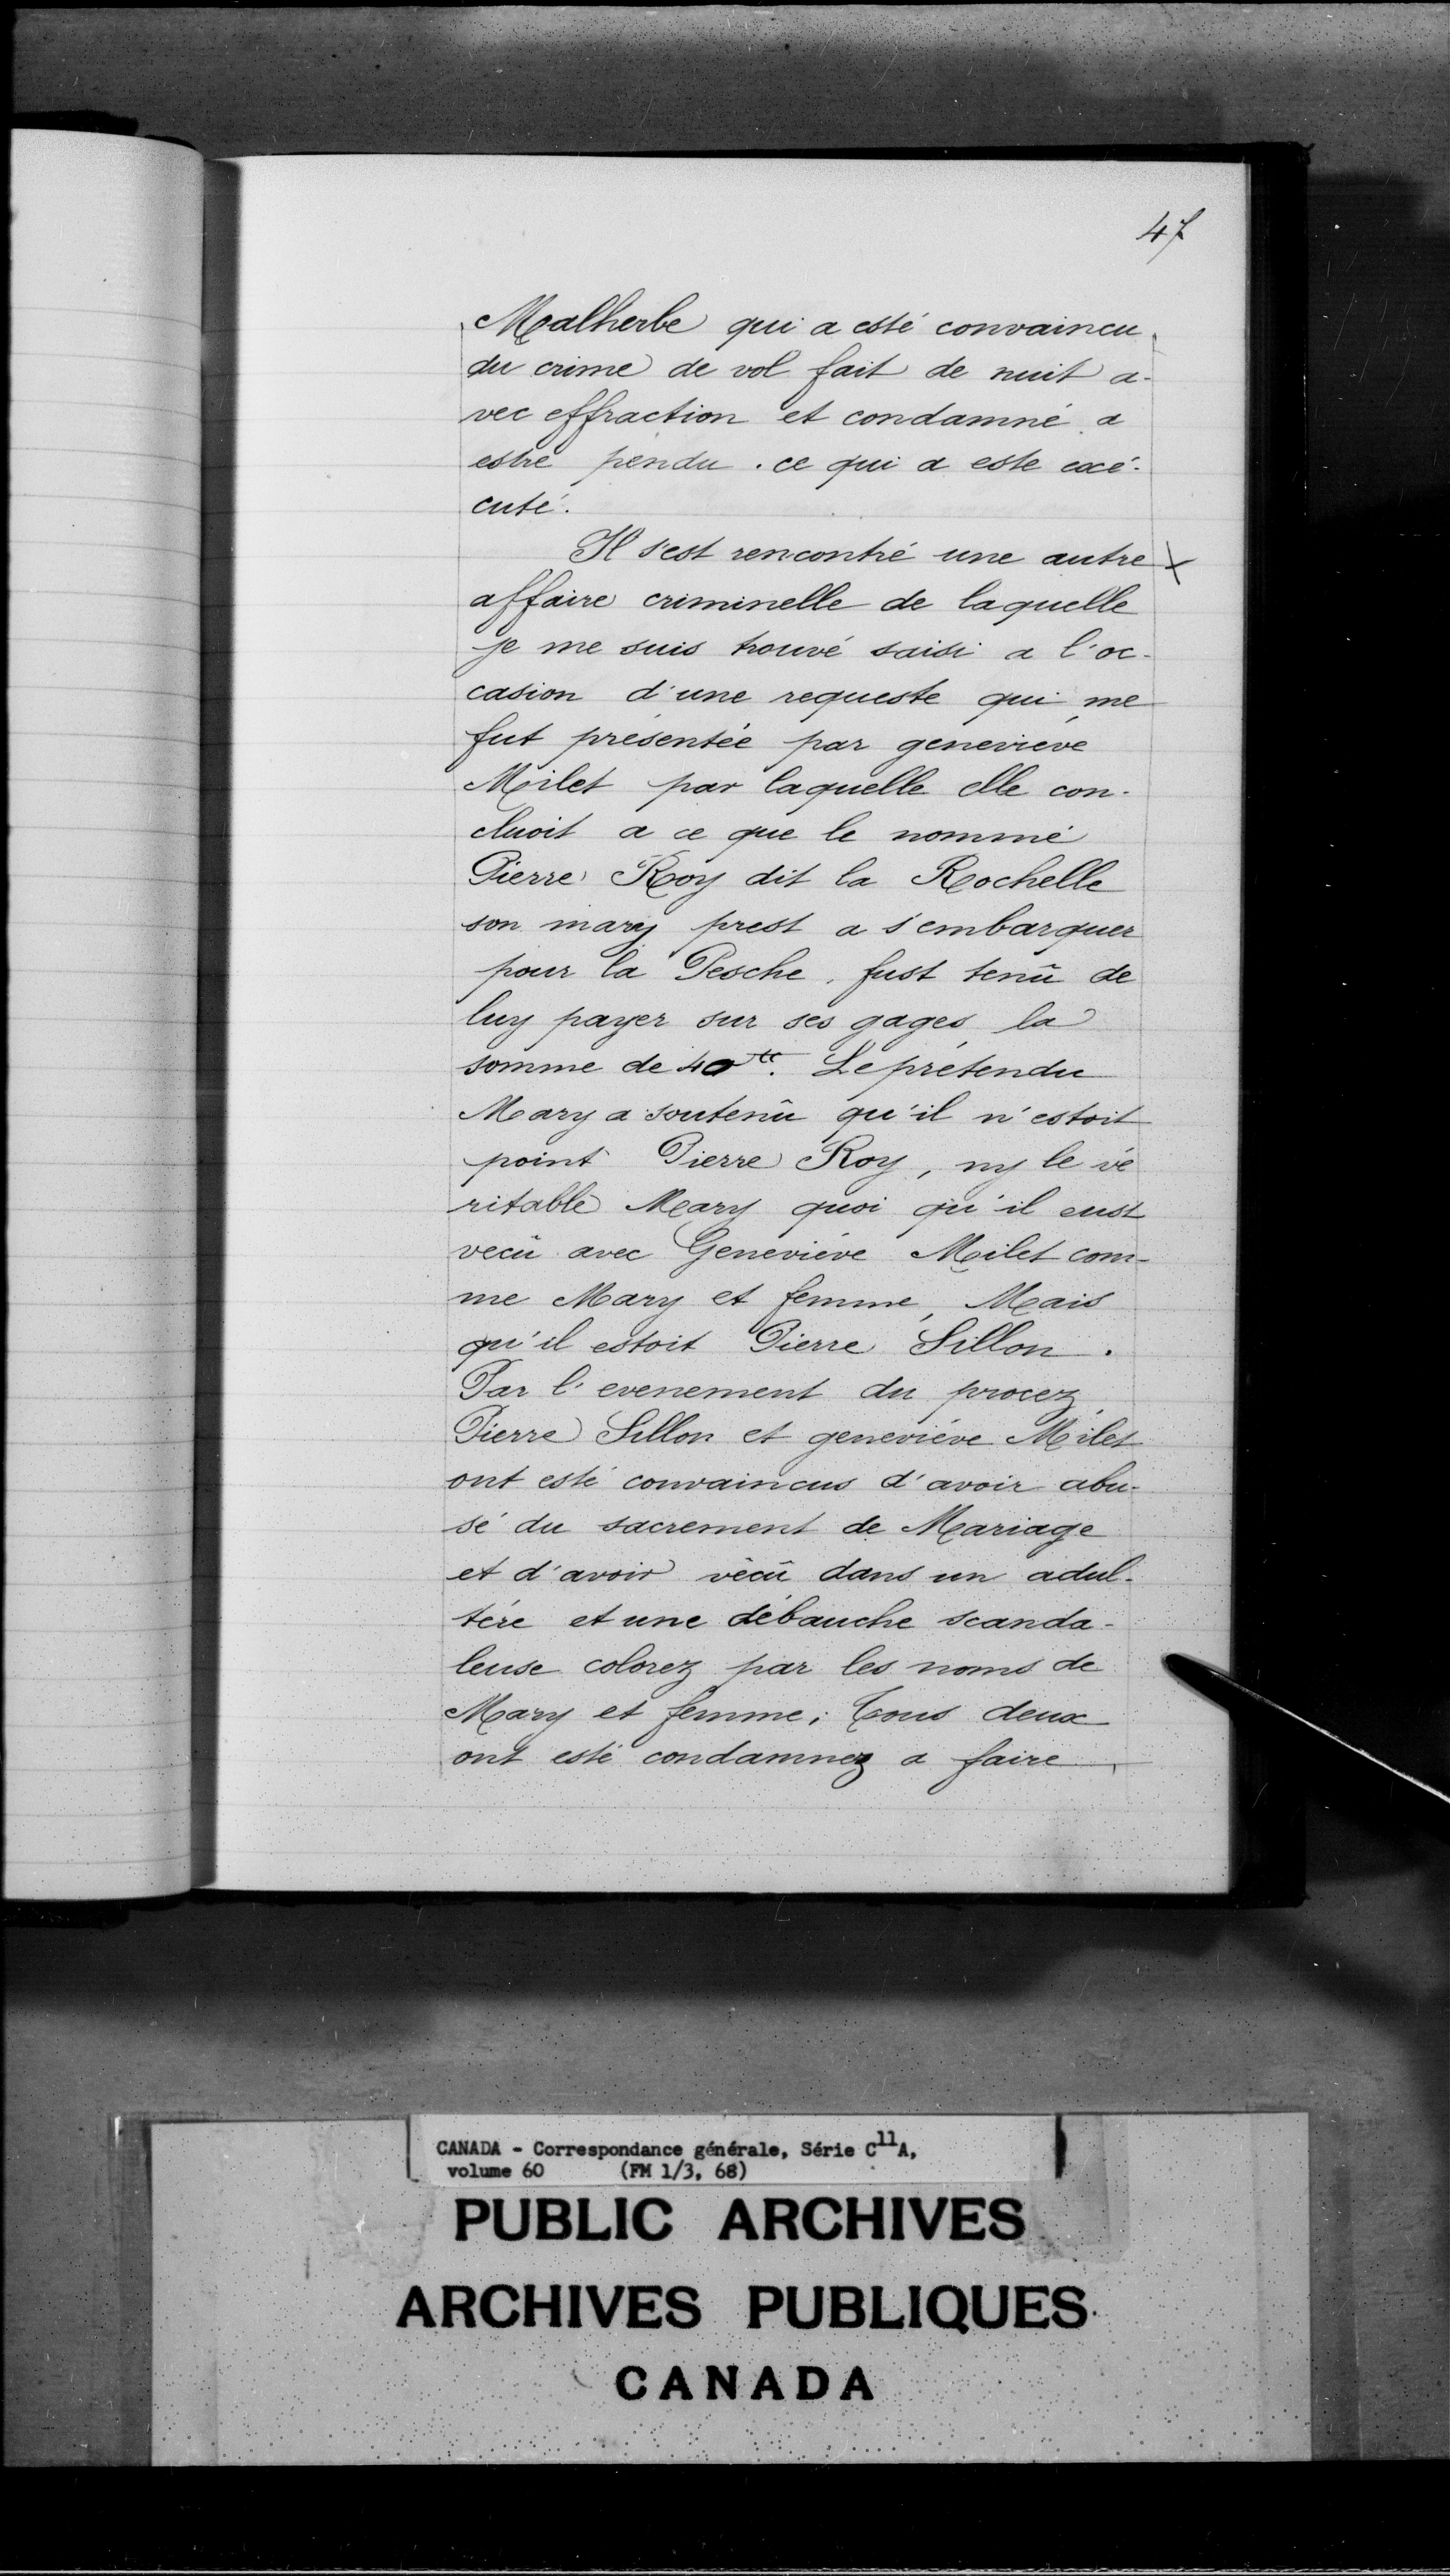 47
Malherbe qui a esté convaincu
du crime de vol fait de nuit a-
vec effraction et condamné a
estre pendu. ce qui a este exé-
cuté.
Il s'est rencontré une autre X
affaire criminelle de laquelle
je me suis trouvé saisi a l'oc-
casion d'une requeste qui me
fut présentée par geneviéve
Milet par laquelle elle con-
cluoit a ce que le nommé
Pierre Roy dit la Rochelle
son mary prest a s'embarquer
pour la Pesche, fust tenû de
luy payer sur ses gages la
somme de 40tt. Le prétendu
Mary a soutenû qu'il n'estoit
point Pierre Roy, ny le vé
ritable Mary quoi qu'il eust
vecû avec Geneviéve Milet com-
me Mary et femme, Mais
qu'il estoit Pierre Sillon.
Par l'evenement du procez
Pierre Sillon et geneviéve Milet
ont esté convaincus d'avoir abu-
sé du sacrement de Mariage
et d'avoir vécû dans un adul-
tére et une débauche scanda-
leuse colorez par les noms de
Mary et femme; Tous deux
ont esté condamnez a faire
CANADA - Correspondance générale, Série C11A,
volume 60 (FM 1/3, 68)
PUBLIC ARCHIVES
ARCHIVES PUBLIQUES
CANADA